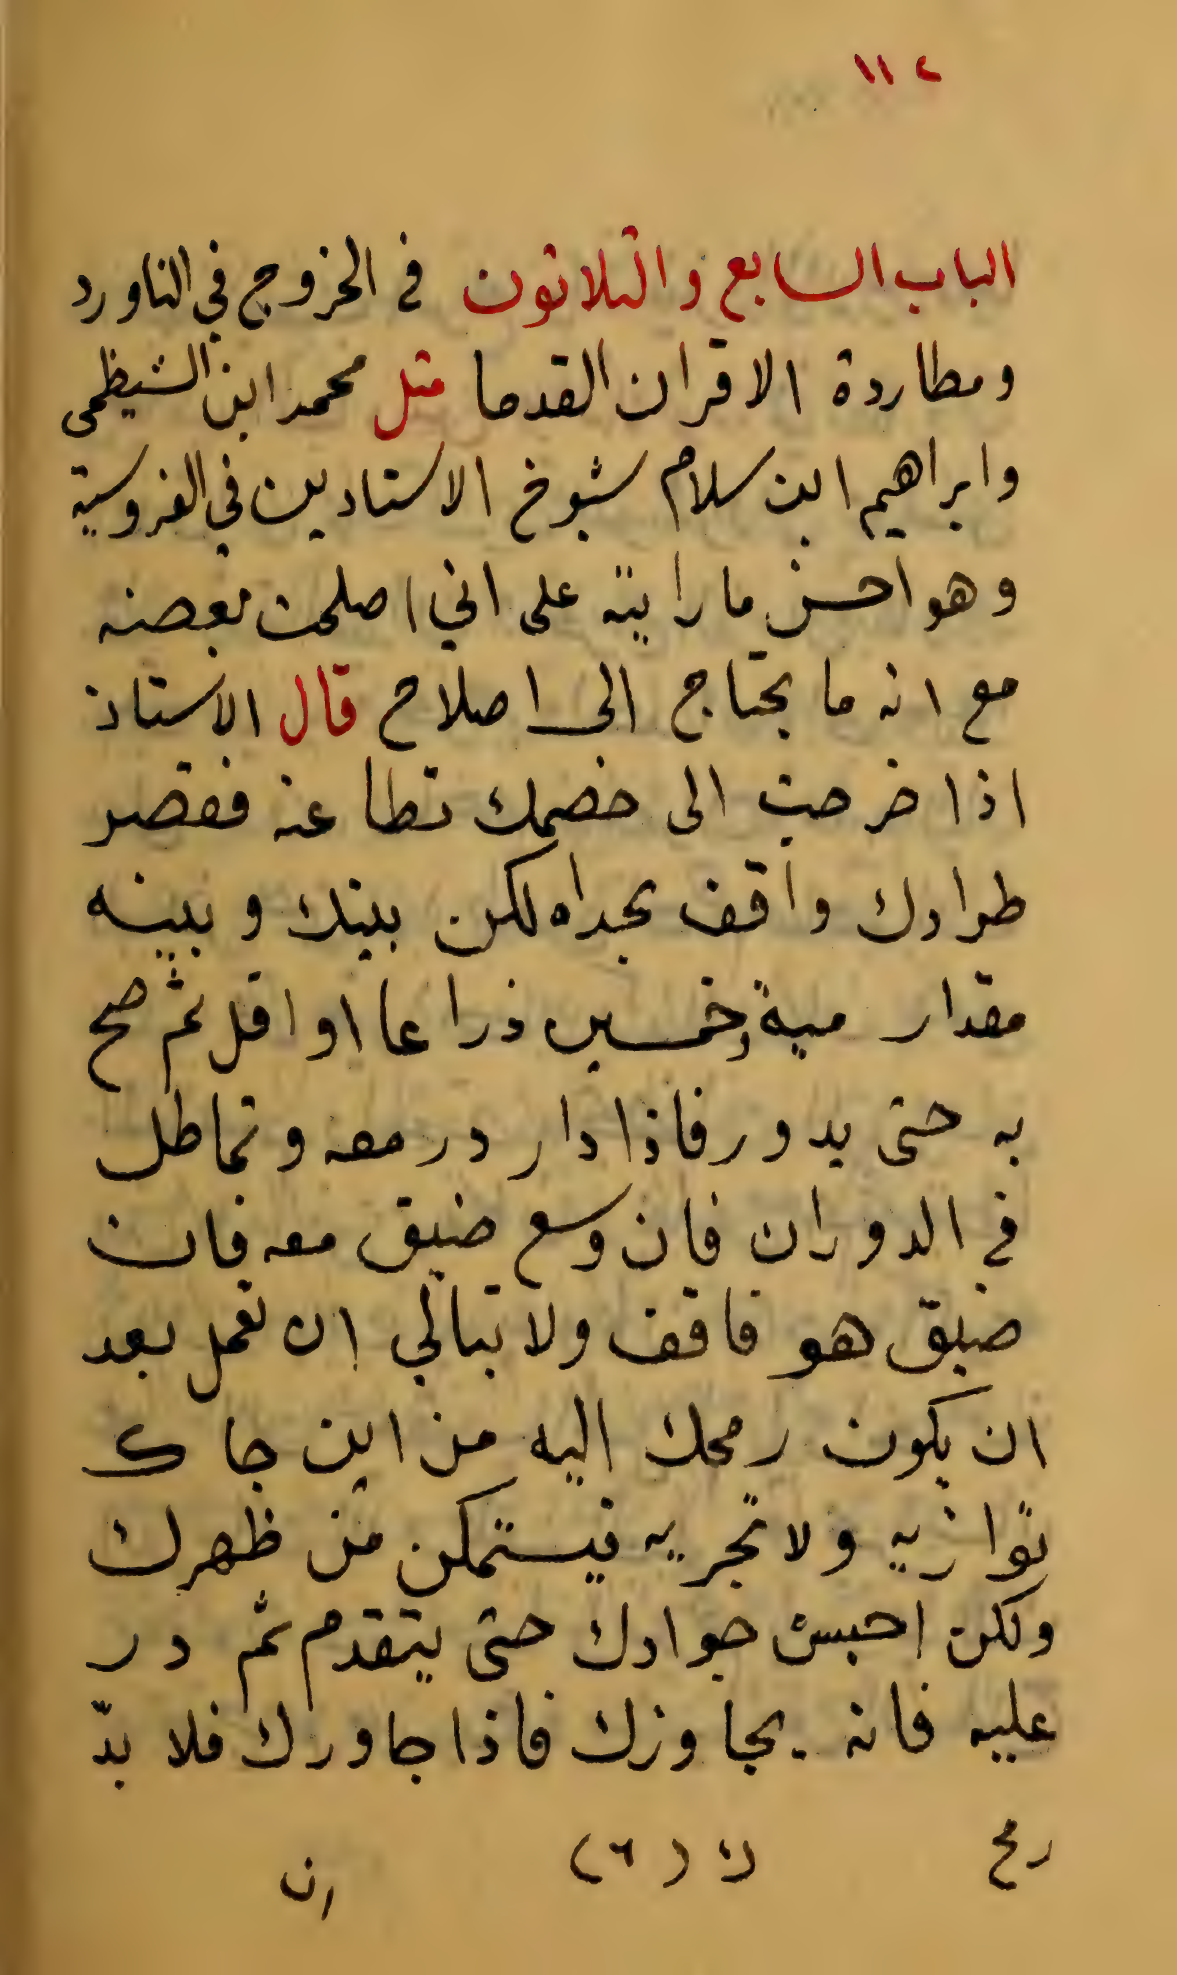 ١١٢
الباب السابع والثلاثون في الخروج في الناورد
ومطاردة الاقران القدما مثل محمد ابن الشيظمى
وابراهيم ابن سلام شيوخ الاستادين في الفروسية
وهو احسن ما رايته على اني اصلحت بعضه
مع انه ما يحتاج الى اصلاح قال الاستاذ
اذا خرجت الى خصمك تطاعنه فقصر
طرادك واقف بحداه لكن بينك وبينه
مقدار مية وخمسين ذراعا او اقل ثم صح
به حتى يدور فاذا دار در معه وتماطل
في الدوران فان وسع ضيق معه فان
ضيق هو فاقف ولا تبالي ان تعمل بعد
ان يكون رمحك اليه من اين جاك
توازيه ولا تجريه فيستمكن من ظهرك
ولكن احبس جوادك حتى يتقدم ثم در
عليه فانه يجاوزك فاذا جاوزك فلا بدّ
رمح ن (٦) ان